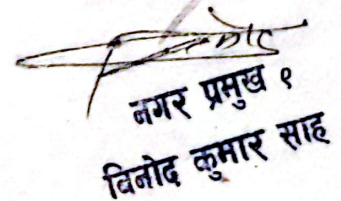 नगर प्रमुख १
विनोद कुमार साह